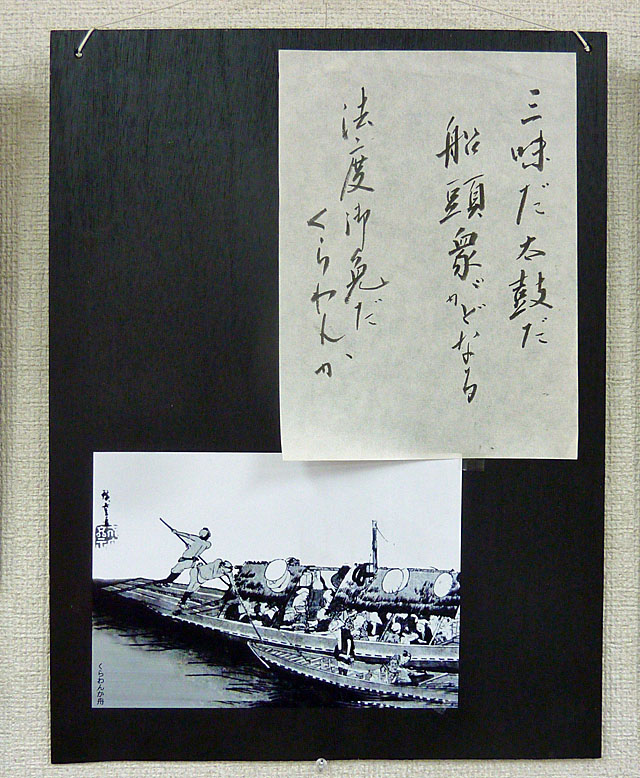 三味だ太鼓だ
船頭衆がどなる
法度御免だ
くらわんか
くらわんか舟